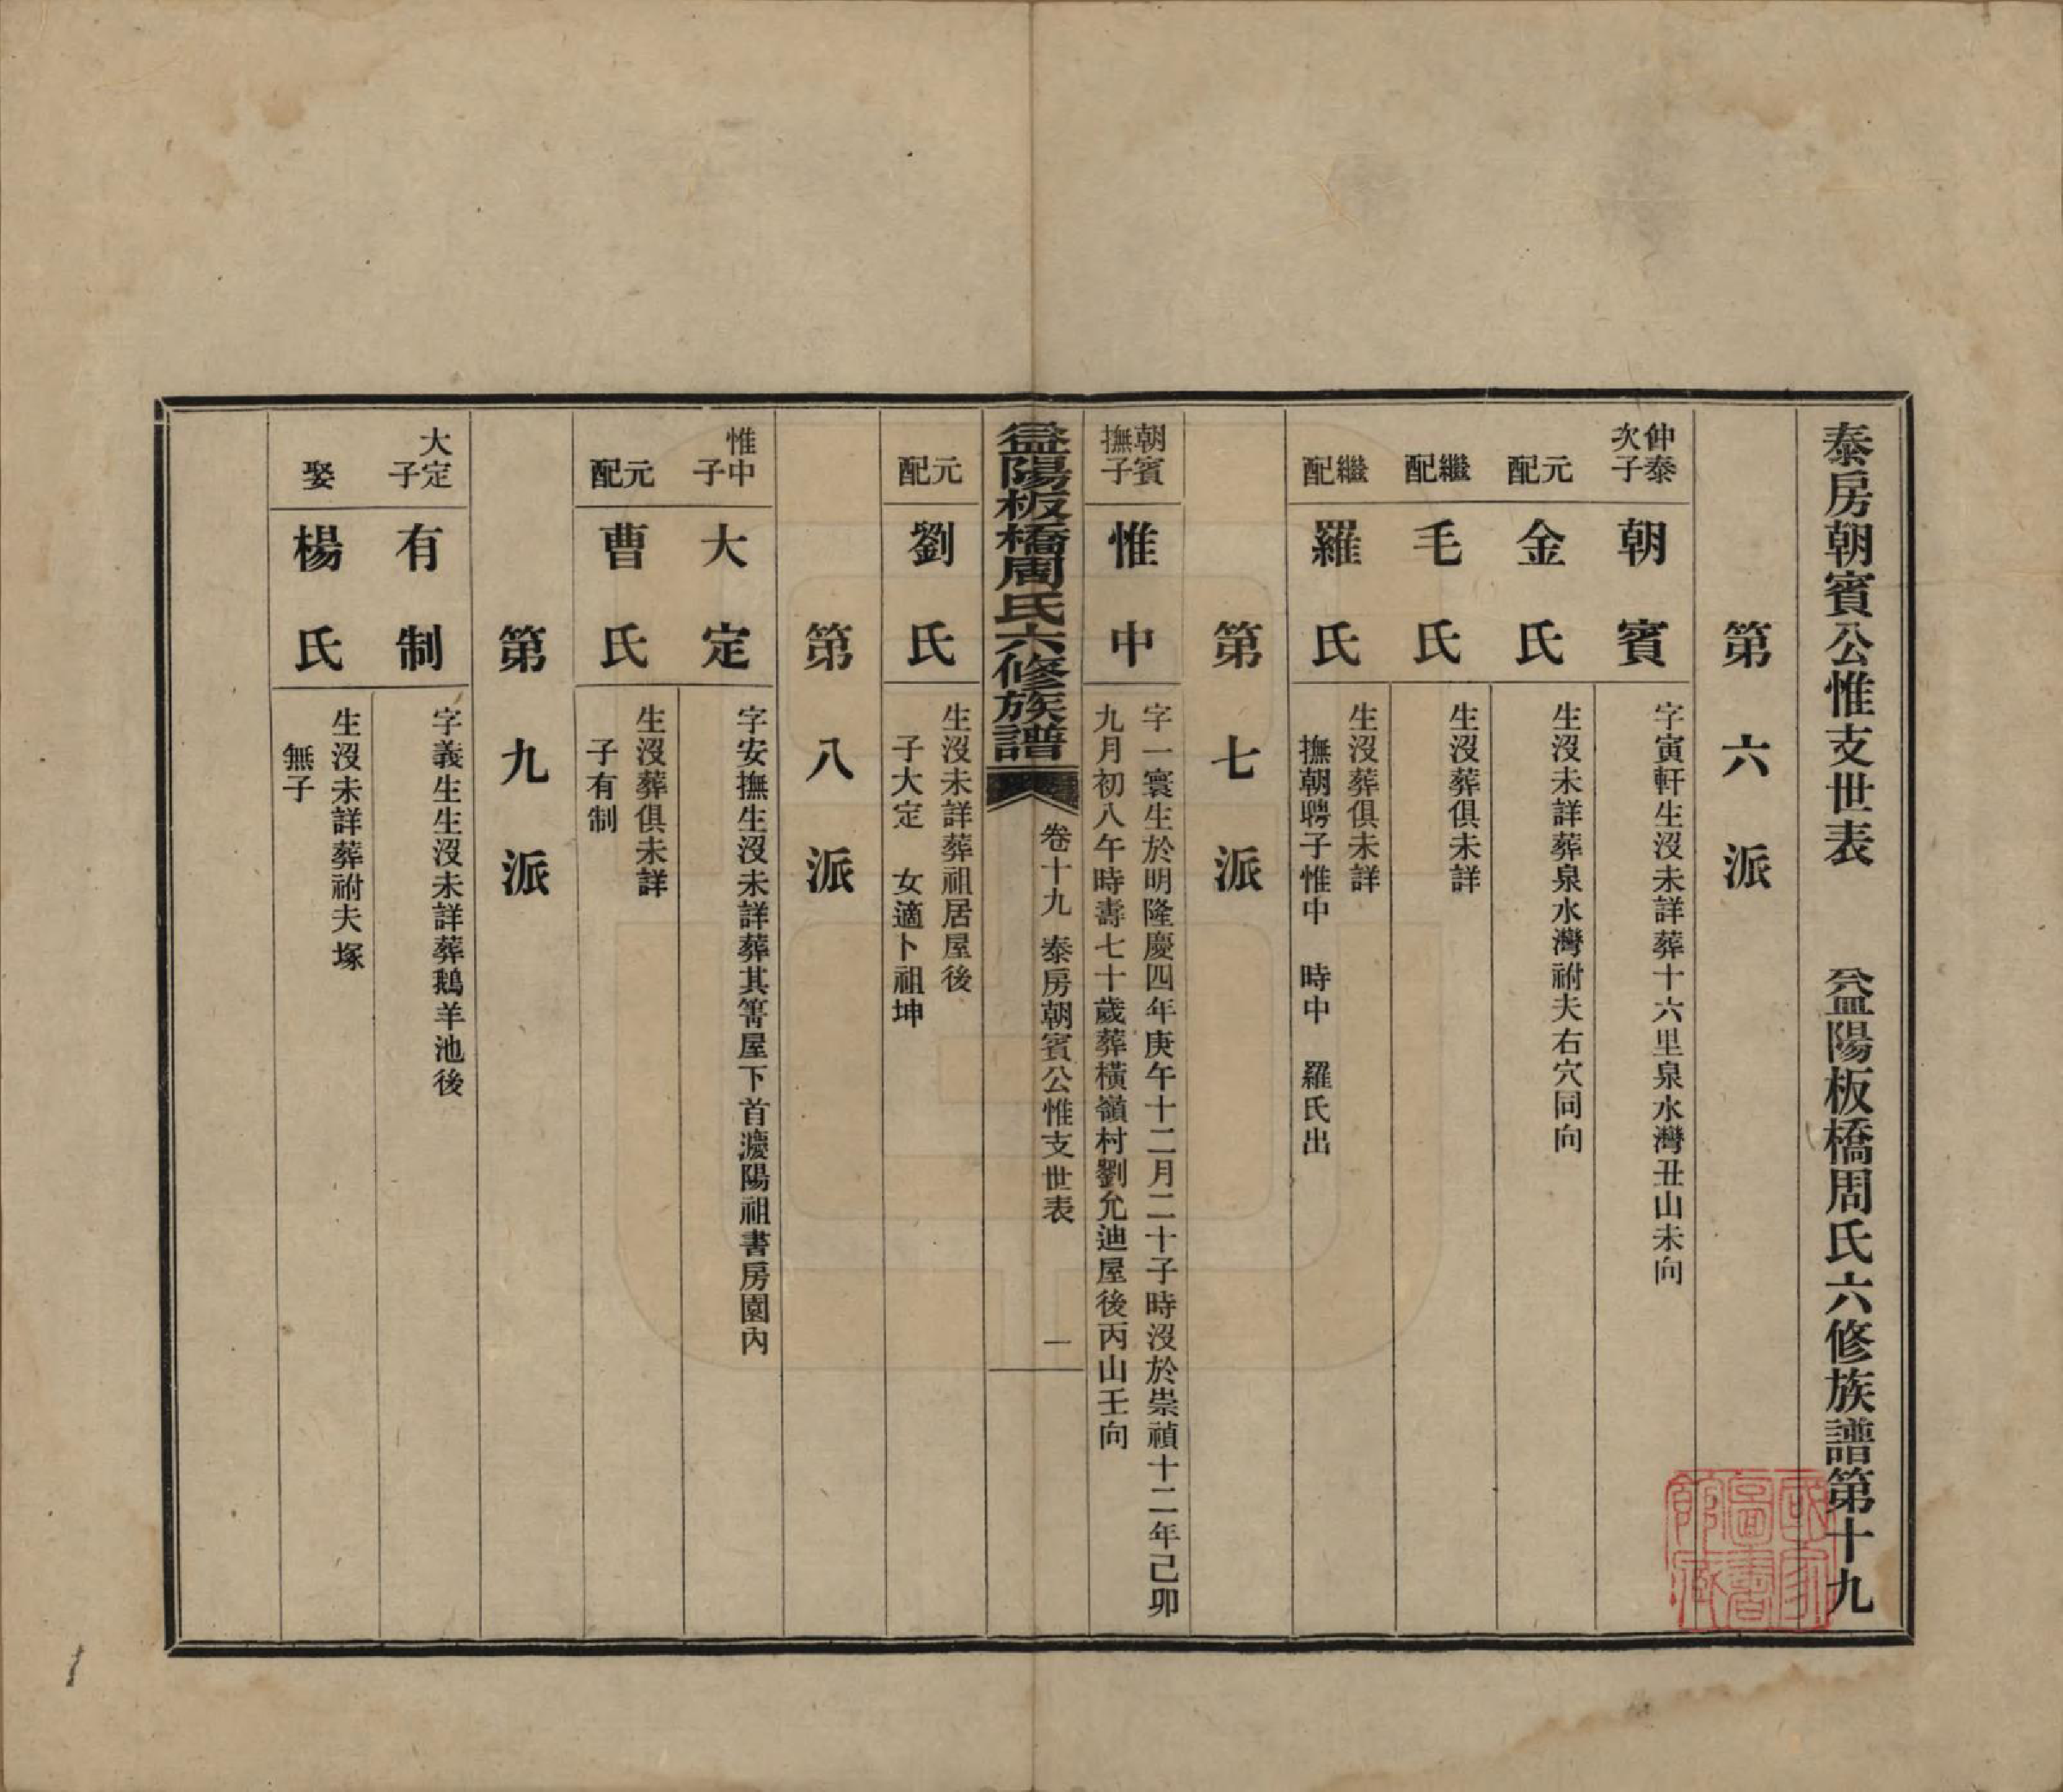 泰房朝賓公惟支世表　　益陽板橋周氏六修族譜第十九
第六派
仲泰
次子
朝賓
字寅軒生沒未詳葬十六里泉水灣丑山未向
元配
金氏
生沒未詳葬泉水灣祔夫右穴同向
繼配
毛氏
生沒葬俱未詳
繼配
羅氏
生沒葬俱未詳
撫朝聘子惟中　時中　羅氏出
第七派
朝賓
撫子
惟中
字一寰生於明隆慶四年庚午十二月二十子時沒於崇禎十二年己卯
九月初八午時壽七十歲葬橫嶺村劉允迪屋後丙山壬向
益陽板橋周氏六修族譜
卷十九　泰房朝賓公惟支世表　一
元配
劉氏
生沒未詳葬祖居屋後
子大定　女適卜祖坤
第八派
惟中
子
大定
字安撫生沒未詳葬其箐屋下首瀌陽祖書房園內
元配
曹氏
生沒葬俱未詳
子有制
第九派
大定
子
有制
字義生生沒未詳葬鵝羊池後
娶
楊氏
生沒未詳葬祔夫塚
無子
國家
圖書
館藏